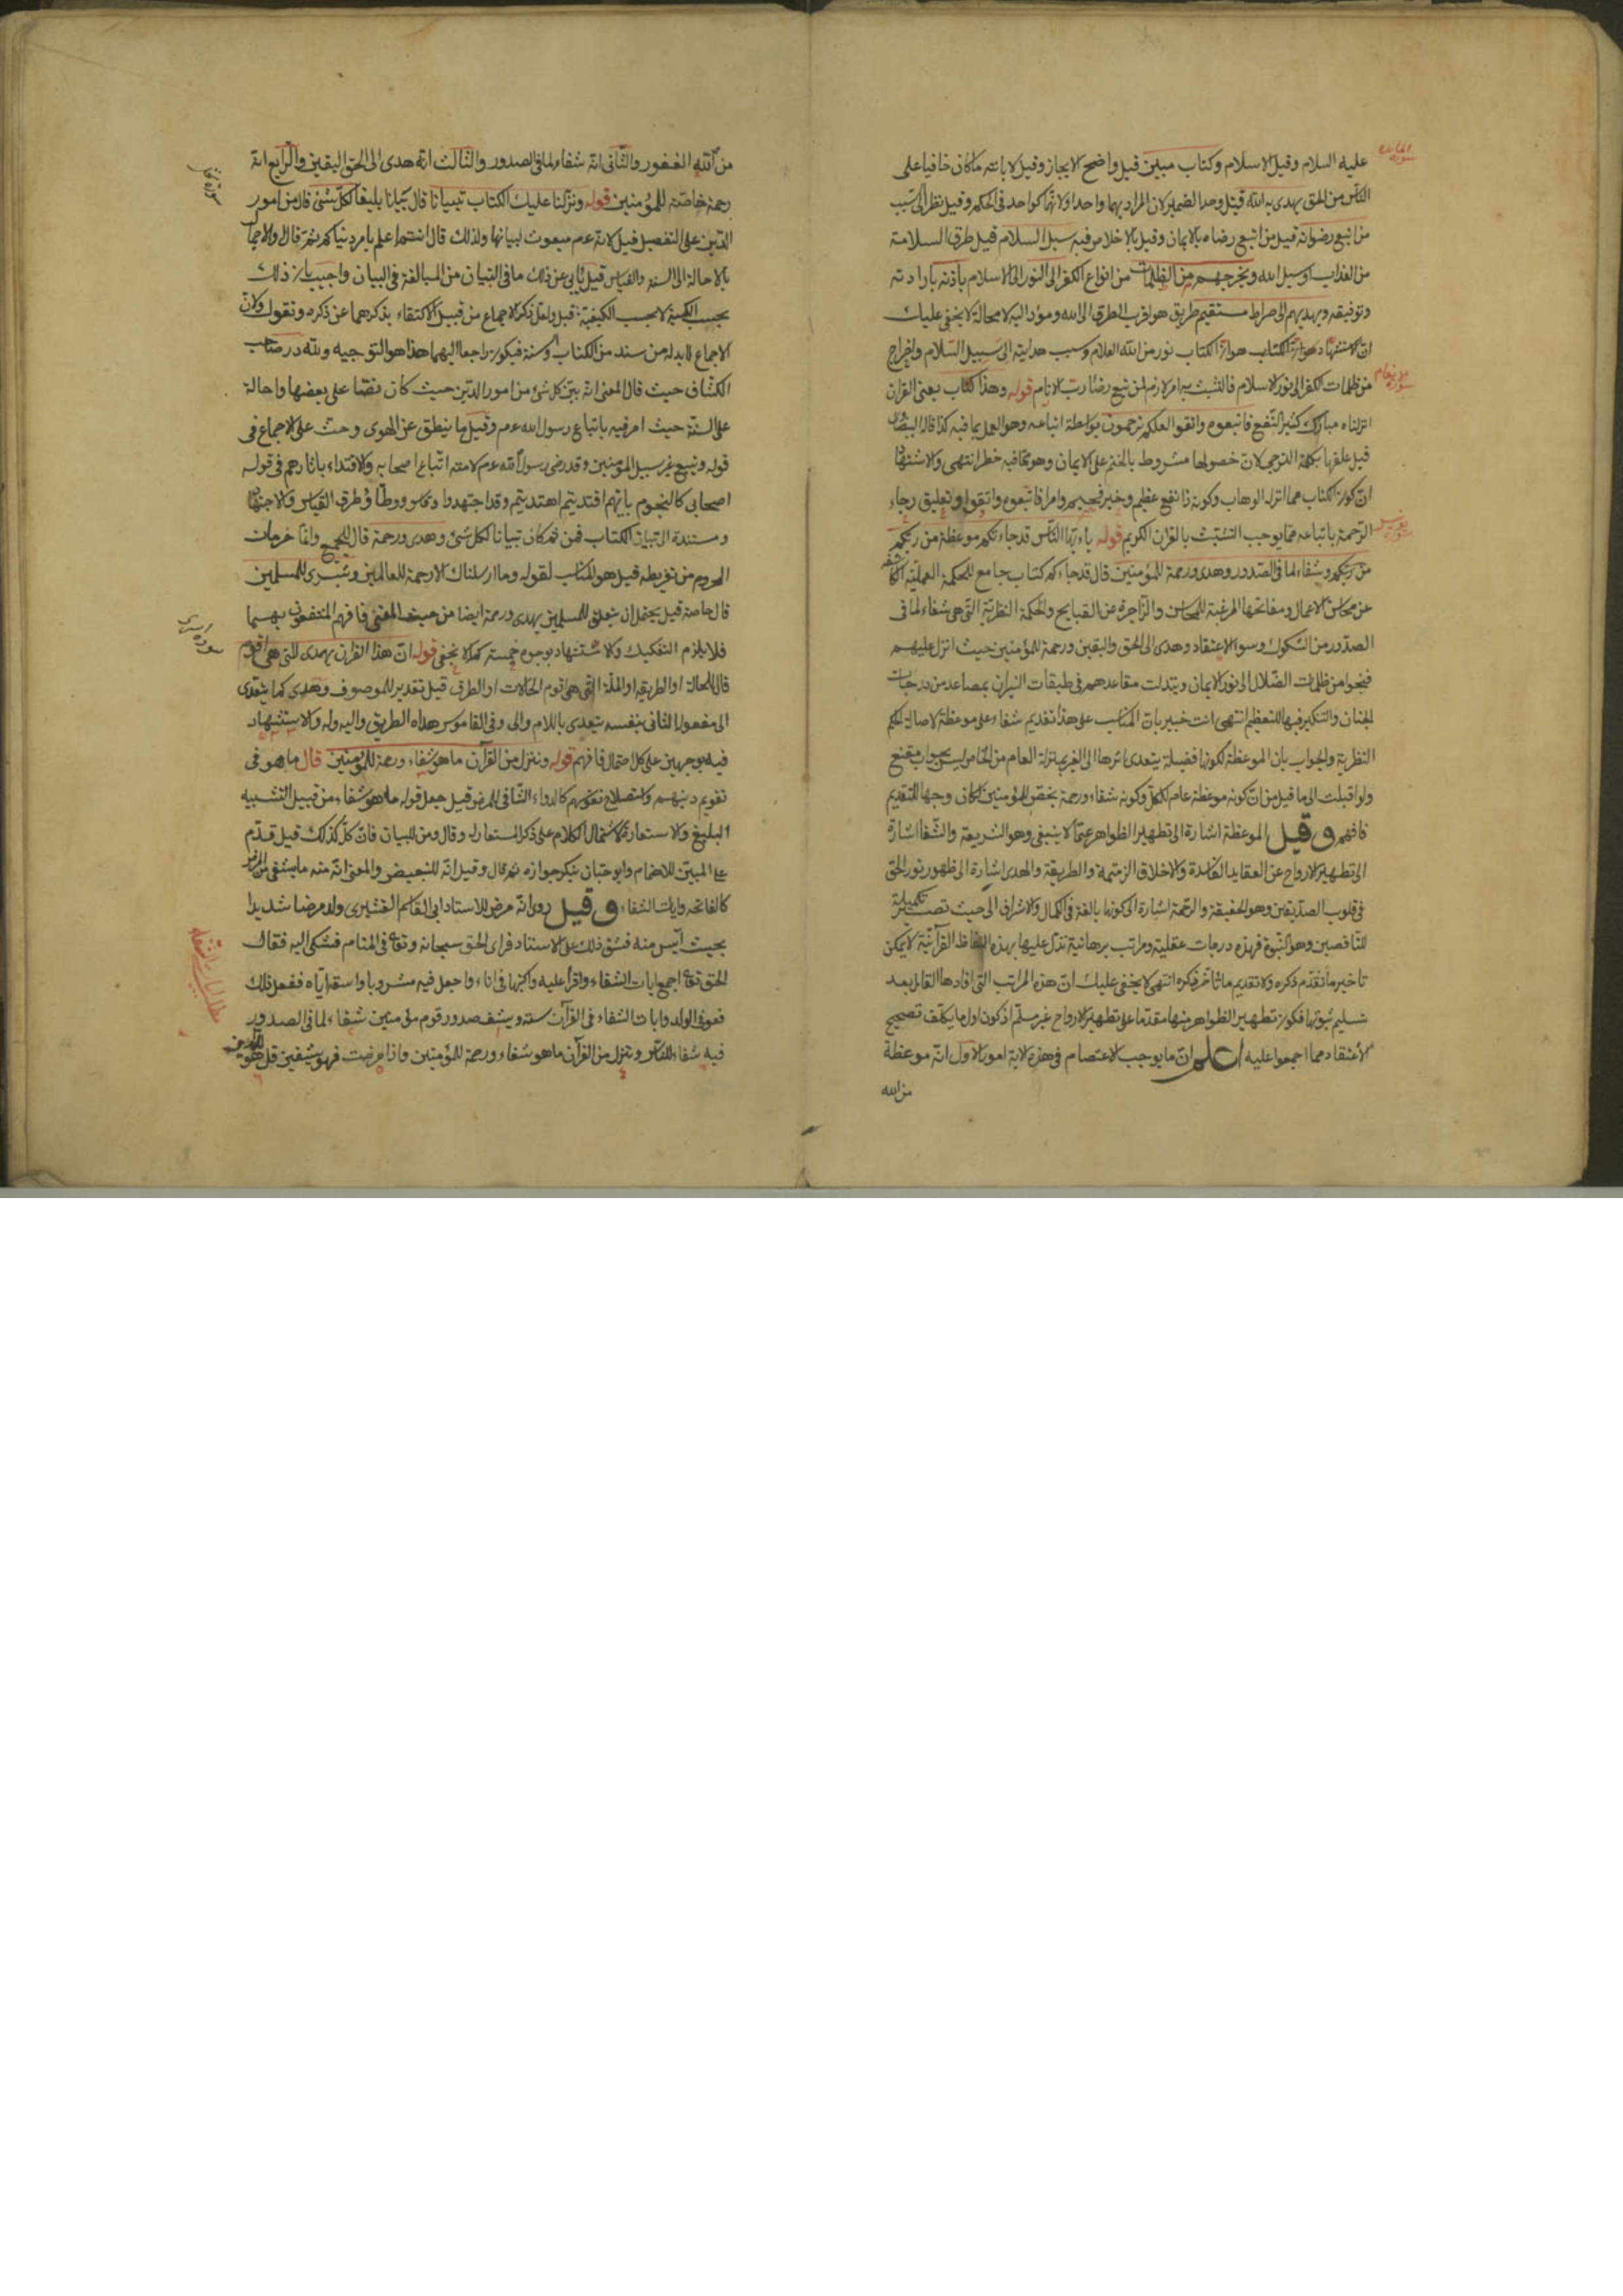 سورة المائدة
عليه السلام وقيل الاسلام وكتاب مبين قيل واضح الايجاز وقيل لابانته ما كان خافيا على
الناس من الحق يهدى به الله قيل وحد الضمير لان المراد بهما واحد او لانهما كواحد فى الحكم وقيل نظر الى سبب
من اتبع رضوانه قيل من اتبع رضاه بالايمان وقيل بالاخلاص فيه سبل السلام قيل طرق السلامة
من العذاب او سبل الله ويخرجهم من الظلمات من انواع الكفر الى النور الى الاسلام باذنه بارادته
وتوفيقه ويهديهم الى صراط مستقيم طريق هو اقرب الطرق الى الله ومؤد اليه لا محالة لا يخفى عليك
ان الاستشهاد هو ان الكتاب نور من الله العلام وسبب هدايته الى سبيل السلام واخراج
سورة الانعام
من ظلمات الكفر الى نور الاسلام فالتشبث به امر لازم لمن تبع رضا رب الانام قوله وهذا كتاب يعنى القران
انزلناه مبارك كثير النفع فاتبعوه واتقوا لعلكم ترحمون بواسطة اتباعه وهو العمل بما فيه كذا قال البيضاوى
قيل علقها بكلمة الترجى لان حصولها مشروط بالختم على الايمان وهو مما فيه خطر انتهى والاستشهاد
ان كون الكتاب مما انزله الوهاب وكونه ذا نفع عظيم وخير فخيم وامر فاتبعوه واتقوا وتعليق رجاء
سورة يونس
الرحمة باتباعه مما يوجب التشبث بالقران الكريم قوله ياءيها الناس قد جاءتكم موعظة من ربكم
من ربكم وشفاء لما فى الصدور وهدى ورحمة للمؤمنين قال قد جاءكم كتاب جامع للحكمة العملية الكاشفة
عن محاسن الاعمال ومقابحها المرغبة للمحاسن والزاجرة عن القبايح والحكمة النظرية التى هى شفاء لما فى
الصدور من الشكوك وسوء الاعتقاد وهدى الى الحق واليقين ورحمة للمؤمنين حيث انزل عليهم
فنجوا من ظلمات الضلال الى نور الايمان وتبدلت مقاعدهم فى طبقات النيران بمصاعد من درجات
الجنان والتنكير فيها للتعظيم انتهى انت خبير بان المناسب على هذا تقديم شفاء على موعظة لاصالة الحكم
النظرية والجواب بان الموعظة لكونها فضيلة يتعدى اثرها الى الغير بمنزلة العام من الخاص ليس بجواب مقنع
ولو اقبلت الى ما قيل من ان كونه موعظة عام للكل وكونه شفاء ورحمة يختص للمؤمنين لكان وجها للتقديم
فافهم وقيل الموعظة اشارة الى تطهير الظواهر عما لا ينبغى وهو الشريعة والشفا اشارة
الى تطهير الارواح عن العقايد الفاسدة والاخلاق الذميمة والطريقة والهدى اشارة الى ظهور نور الحق
فى قلوب الصديقين وهو الحقيقة والرحمة اشارة الى كونها بالغة فى الكمال والاشراف الى حيث تصير تكميلة
للناقصين وهو النبوة فهذه درجات عقلية ومراتب برهانية تدل عليها بهذه الالفاظ القرآنية لا يمكن
تاخير ما تقدم ذكره ولا تقديم ما تأخر ذكره انتهى لا يخفى عليك ان هذه المراتب التى افادها القائل بعد
تسليم ثبوتها فكون تطهير الظواهر منها مقدما على تطهير الارواح غير مسلم اذ كون اول ما يكلف تصحيح
الاعتقاد مما اجمعوا عليه اعلم ان ما يوجب الاعتصام فى هذه الاية امور الاول انه موعظة
من الله
من الله الغفور والثانى انه شفاء لما فى الصدور والثالث انه هدى الى الحق اليقين والرابع انه
رحمة خاصة للمؤمنين قوله ونزلنا عليك الكتاب تبيانا قال بيانا بليغا لكل شئ قال من امور
الدين على التفصيل قيل لانه عم مبعوث لبيانها ولذلك قال انتم اعلم بامر دنياكم ثم قال والاجمال
بالاحالة الى السنة والقياس قيل يابى عن ذلك ما فى التبيان من المبالغة فى البيان واجيب بان ذلك
بحسب الكمية لا بحسب الكيفية قيل ولعل ذكر الاجماع من قبيل الاكتفاء بذكرهما عن ذكره ونقول ولان
الاجماع لا بد له من سند من الكتاب او سنة فيكون راجعا اليهما هذا هو التوجيه ولله در صاحب
الكشاف حيث قال المعنى انه بين كل شئ من امور الدين حيث كان نصا على بعضها واحالة
على السنة حيث امر فيه باتباع رسول الله عم وقيل ما ينطق عن الهوى وحث على الاجماع فى
قوله ويتبع غير سبيل المؤمنين وقد رضى رسول الله عم لامته اتباع اصحابه والاقتداء باثارهم فى قوله
اصحابى كالنجوم بايهم اقتديتم اهتديتم وقد اجتهدوا وقاسوا ووطأوا طرق القياس والاجتهاد
ومستندة الى تبيان الكتاب فمن ثم كان تبيانا لكل شئ وهدى ورحمة قال للجميع وانما حرمان
المحروم من تفريطه قيل هو المناسب لقوله وما ارسلناك الا رحمة للعالمين وبشرى للمسلمين
قال خاصة قيل يحتمل ان يتعلق للمسلمين بهدى ورحمة ايضا من حيث المعنى فافهم المنتفعون بهما
سورة اسرى
فلا يلزم التفكيك والاستشهاد بوجوه خمسة كما لا يخفى قوله ان هذا القران يهدى للتى هى اقوم
قال للحالة او الطريقة او الملة التى هى اقوم الحالات او الطرق قيل تقدير للموصوف وهدى كما يتعدى
الى مفعول الثانى بنفسه يتعدى باللام والى وفى القاموس هداه الطريق واليه وله والاستشهاد
فيه بوجهين على كل احتمال فافهم قوله وننزل من القرآن ما هو شفاء ورحمة للمؤمنين قال ما هو فى
تقويم دينهم واستصلاح نفوسهم كالدواء الشافى للمرض قيل جعل قوله ما هو شفاء من قبيل التشبيه
البليغ والاستعارة لاشتمال الكلام على ذكر المستعار له وقال ومن للبيان فان كل كذلك قيل قدم
على المبين للاهتمام وابو حيان ينكر جوازه ثم قال وقيل انه للتبعيض والمعنى انه منه ما يشفى من المرض
كالفاتحة وايات الشفاء وقيل روى انه مرض للاستاد ابى القاسم القشيرى ولد مرضا شديدا
بحيث آيس منه فشق ذلك على الاستاد فراى الحق سبحانه وتعا فى المنام فشكى اليه فقال
مطلب ايات الشفاء
الحق تعا اجمع ايات الشفاء واقرأ عليه واكتبها فى اناء واجعل فيه مشروبا واسقه اياه ففعل ذلك
فعوفى الولد وايات الشفاء فى القرآن سته ويشف صدور قوم مؤمنين شفاء لما فى الصدور
فيه شفاء للناس وننزل من القرآن ما هو شفاء ورحمة للمؤمنين واذا مرضت فهو يشفين قل هو للذين